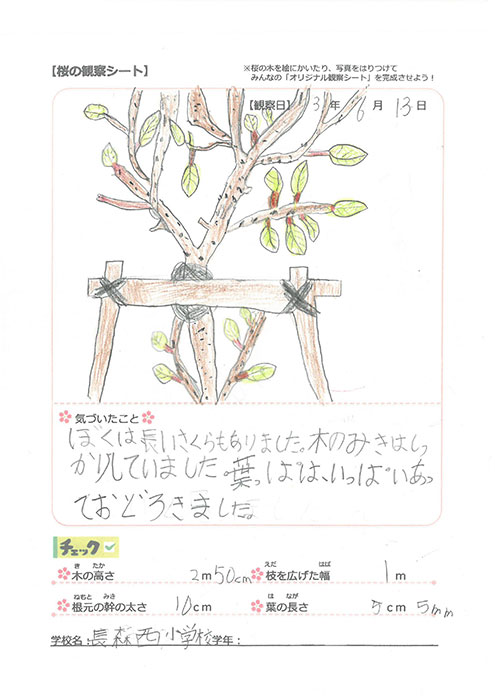 【桜の観察シート】
※桜の木を絵にかいたり、写真をはりつけて
みんなの「オリジナル観察シート」を完成させよう！
【観察日】 31年 6月 13日
気づいたこと
ぼくは長いさくらもありました。木のみきはしっ
かりしていました。葉っぱは、いっぱいあっ
ておどろきました。
チェック
木の高さ 2m50cm
枝を広げた幅 1m
根元の幹の太さ 10cm
葉の長さ 5cm 5mm
学校名：長森西小学校 学年：